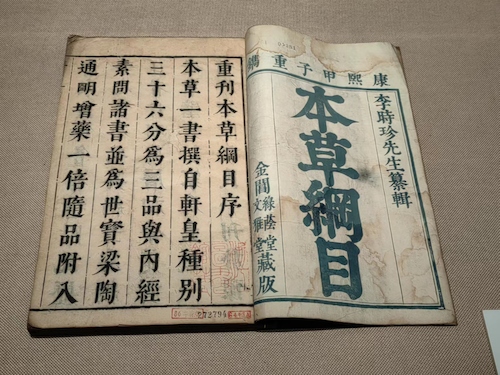 康熙甲子重
李時珍先生纂輯
本草綱目
金閶綠蔭堂藏版
文雅堂
重刊本草綱目序
本草一書撰自軒皇種別
三十六分為三品與內經
素問諸書並為世寶梁陶
通明增藥一倍隨品附入
272794